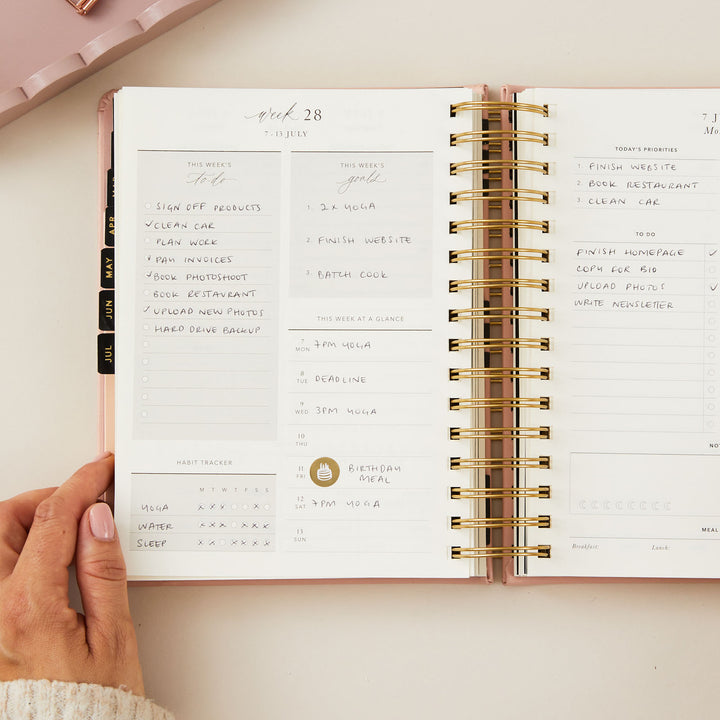 week 28
7-13 JULY
THIS WEEK'S
to-do
SIGN OFF PRODUCTS
CLEAN CAR
PLAN WORK
PAY INVOICES
BOOK PHOTOSHOOT
BOOK RESTAURANT
UPLOAD NEW PHOTOS
HARD DRIVE BACKUP
THIS WEEK'S
goals
1. 2 x YOGA
2. FINISH WEBSITE
3. BATCH COOK
THIS WEEK AT A GLANCE
7 MON 7PM YOGA
8 TUE DEADLINE
9 WED 3PM YOGA
10 THU
11 FRI BIRTHDAY
MEAL
12 SAT 7PM YOGA
13
HABIT TRACKER
M T W T F S S
YOGA x x x x
WATER
SLEEP
APR
MAY
JUN
JUL
7 J
Mo
TODAY'S PRIORITIES
1. FINISH WEBSITE
2. BOOK RESTAURANT
3. CLEAN CAR
TO DO
FINISH HOMEPAGE
COPY FOR BIO
UPLOAD PHOTOS
WRITE NEWSLETTER
NOT
MEAL
Breakfast: Lunch: